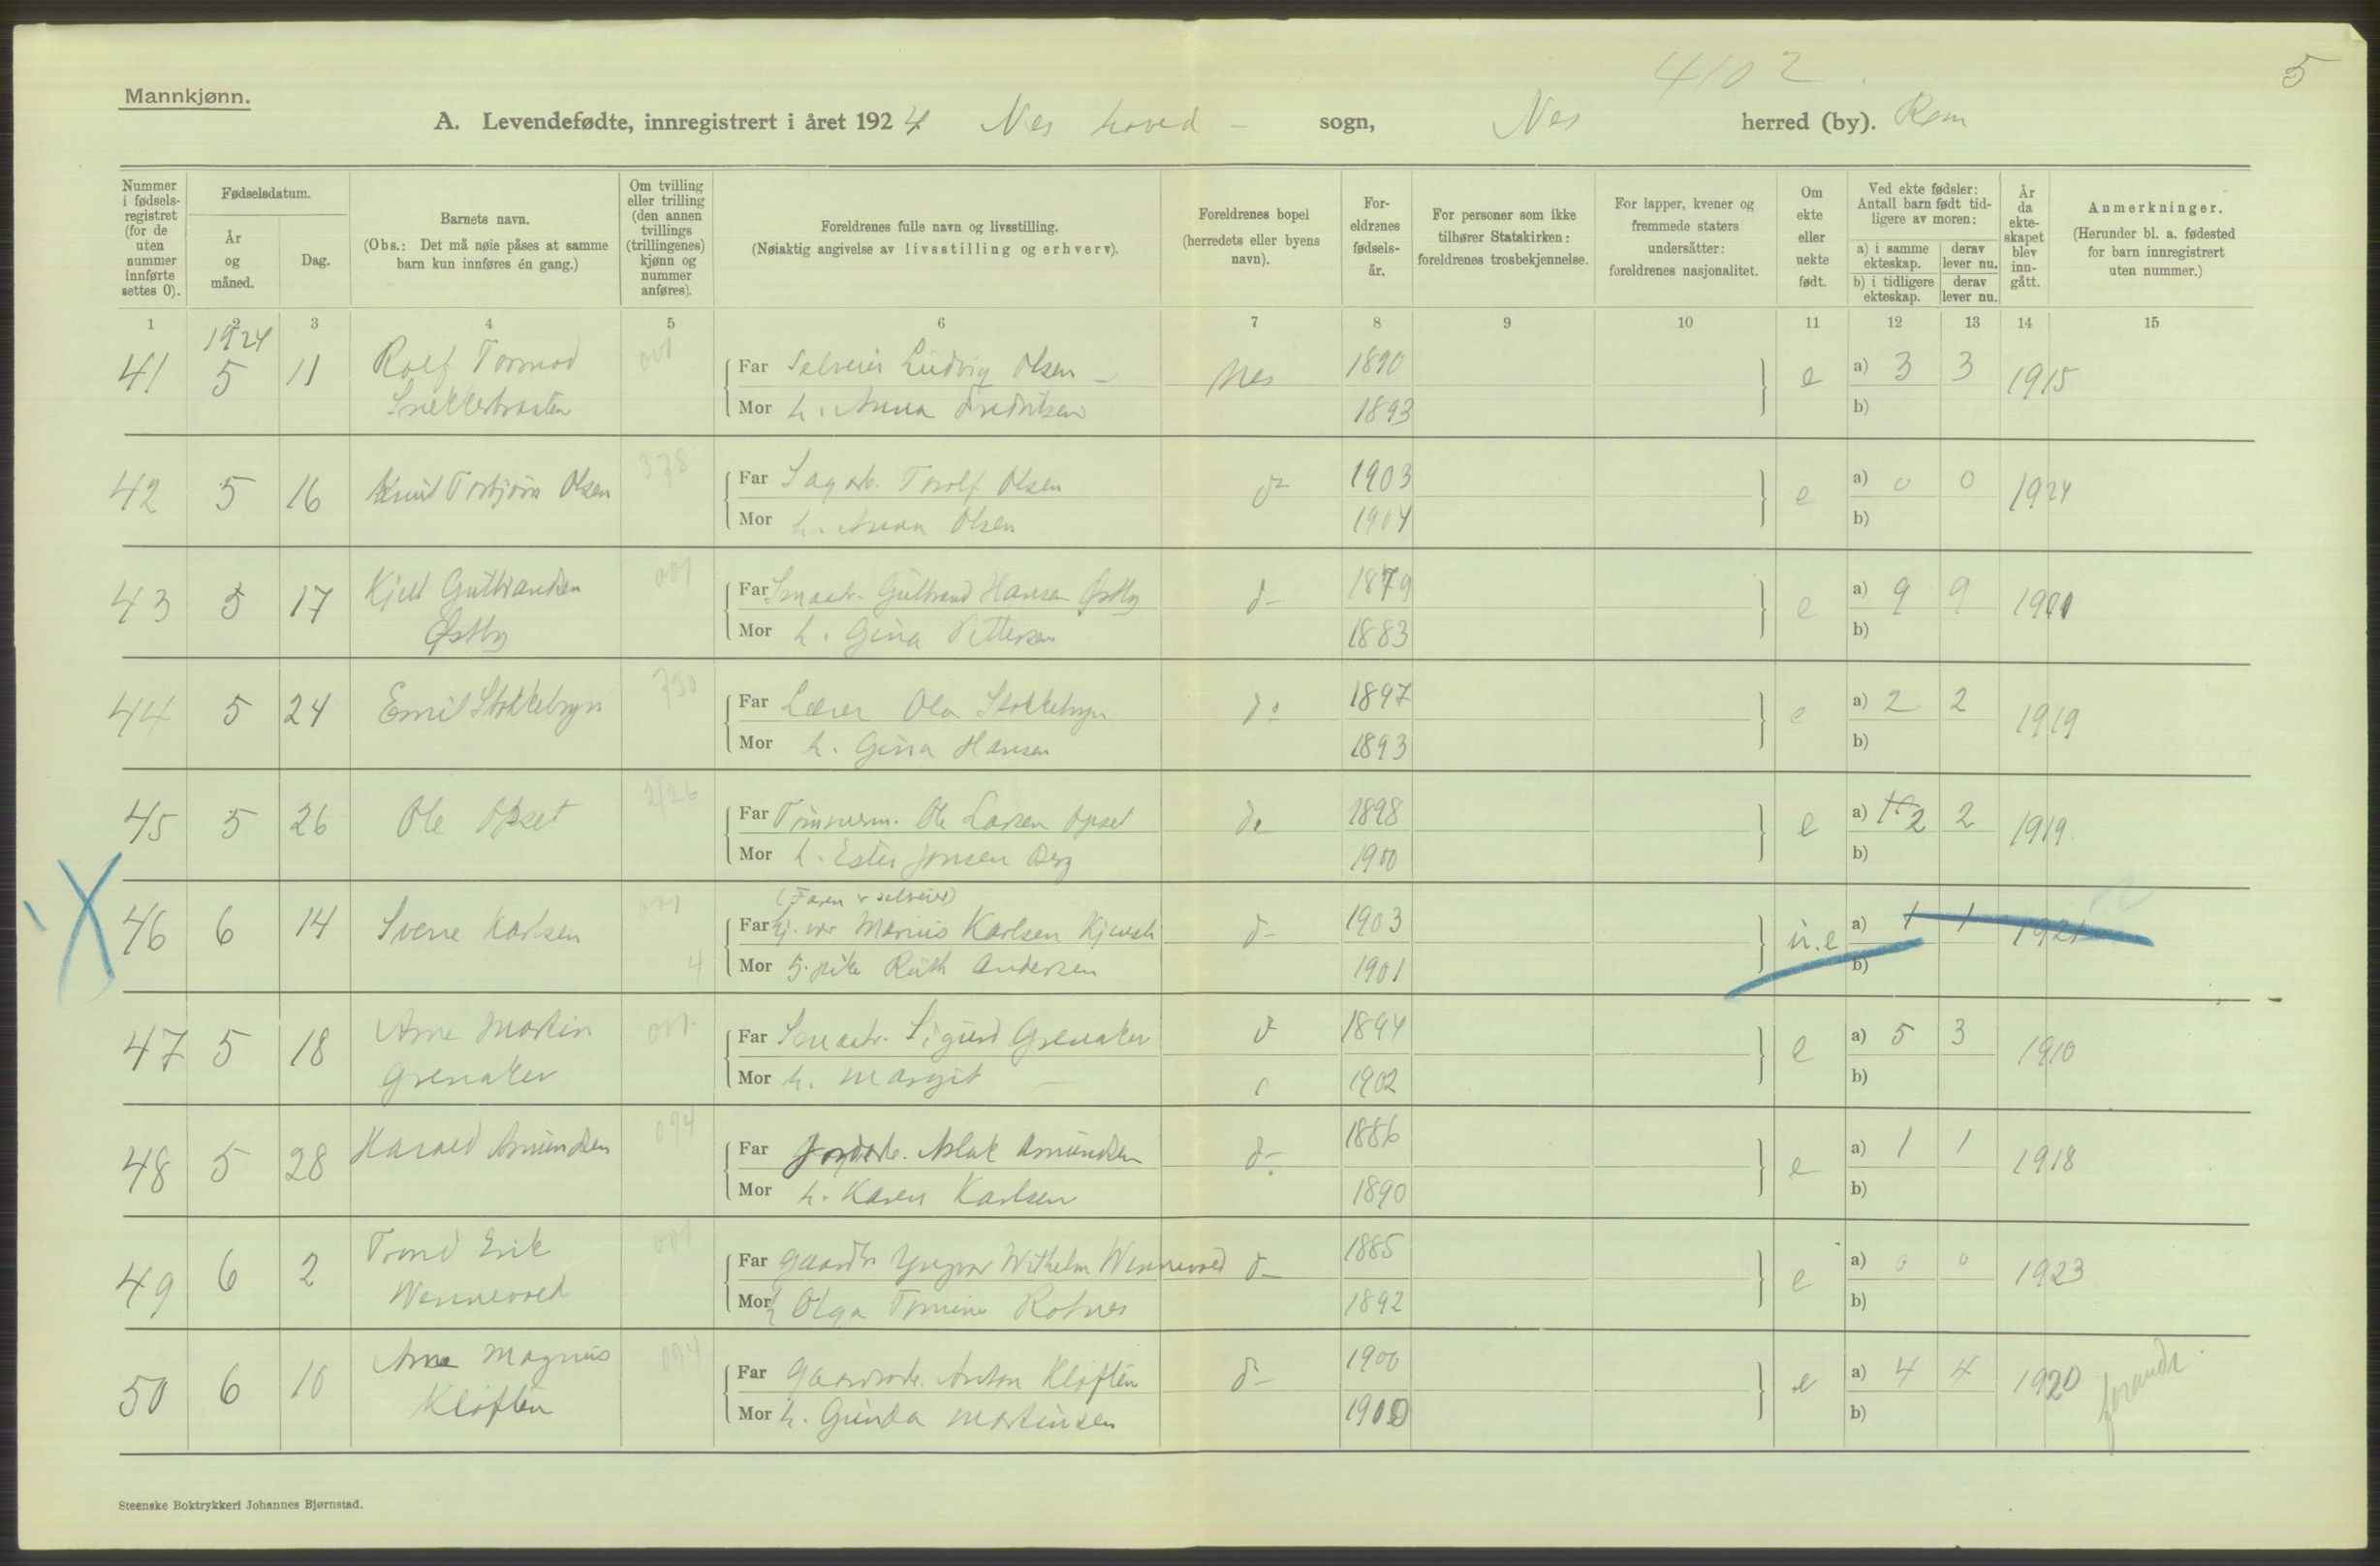 4102
5
Mannkjønn.
A. Levendefødte, innregistrert i året 1924 Nes hoved - sogn, Nes herred (by). Rom
Nummer i fødselsregistret (for de uten nummer innførte settes 0).
Fødselsdatum.
År og måned.
Dag.
Barnets navn.
(Obs.: Det må nøie påses at samme barn kun innføres én gang.)
Om tvilling eller trilling (den annen tvillings (trillingenes) kjønn og nummer anføres).
Foreldrenes fulle navn og livsstilling.
(Nøiaktig angivelse av livsstilling og erhverv).
Foreldrenes bopel (herredets eller byens navn).
Foreldrenes fødselsår.
For personer som ikke tilhører Statskirken: foreldrenes trosbekjennelse.
For lapper, kvener og fremmede staters undersåtter: foreldrenes nasjonalitet.
Om ekte eller uekte født.
Ved ekte fødsler: Antall barn født tidligere av moren:
a) i samme ekteskap.
derav lever nu.
b) i tidligere ekteskap.
derav lever nu.
År da ekteskapet blev inngått.
Anmerkninger.
(Herunder bl. a. fødested for barn innregistrert uten nummer.)
1 2 3 4 5 6 7 8 9 10 11 12 13 14 15
1924
41 5 11 Rolf Tormod 001 Far Selveier Ludvig Olsen Nes 1890 e a) 3 3 1915
Snekkerbraaten Mor h. Anna Fredriksen 1893 b)
42 5 16 Knut Torbjørn Olsen 378 Far Sagarb. Torolf Olsen d- 1903 e a) 0 0 1924
Mor h. Anna Olsen 1904 b)
43 5 17 Kjell Gulbrandsen 001 Far Smaabr. Gulbrand Hansen Østby d- 1879 e a) 9 9 1901
Østby Mor h. Gina Pettersen 1883 b)
44 5 24 Emil Stokkebryn 730 Far Lærer Ola Stokkebryn do 1897 e a) 2 2 1919
Mor h. Gina Hansen 1893 b)
45 5 26 Ole Opset 2/26 Far Tømmerm. Ole Larsen Opset do 1898 e a) 2 2 1919
Mor h. Ester Jonsen Berg 1900 b)
(Faren er selveier)
46 6 14 Sverre Karlsen 001 Far Marius Karlsen d- 1903 u.e a) 1 1 1921
4 Mor Ruth Andersen 1901 b)
47 5 18 Arne Martin 001 Far Smaabr. Sigurd Grenaker d 1894 e a) 5 3 1910
Grenaker Mor h. Margit - 1902 b)
48 5 28 Harald Amundsen 094 Far Jordarb. Aslak Amundsen d- 1886 e a) 1 1 1918
Mor h. Karen Karlsen 1890 b)
49 6 2 Trond Erik 001 Far Gaardbr Yngvar Wilhelm Wennevold d- 1885 e a) 0 0 1923
Wennevold Mor h Olga Tomine Rotnes 1892 b)
50 6 10 Arne Magnus 094 Far Gaardsarb. Anton Kløften d- 1900 e a) 4 4 1920
Kløften Mor h. Gunda Martinsen 1900 b)
Steenske Boktrykkeri Johannes Bjørnstad.